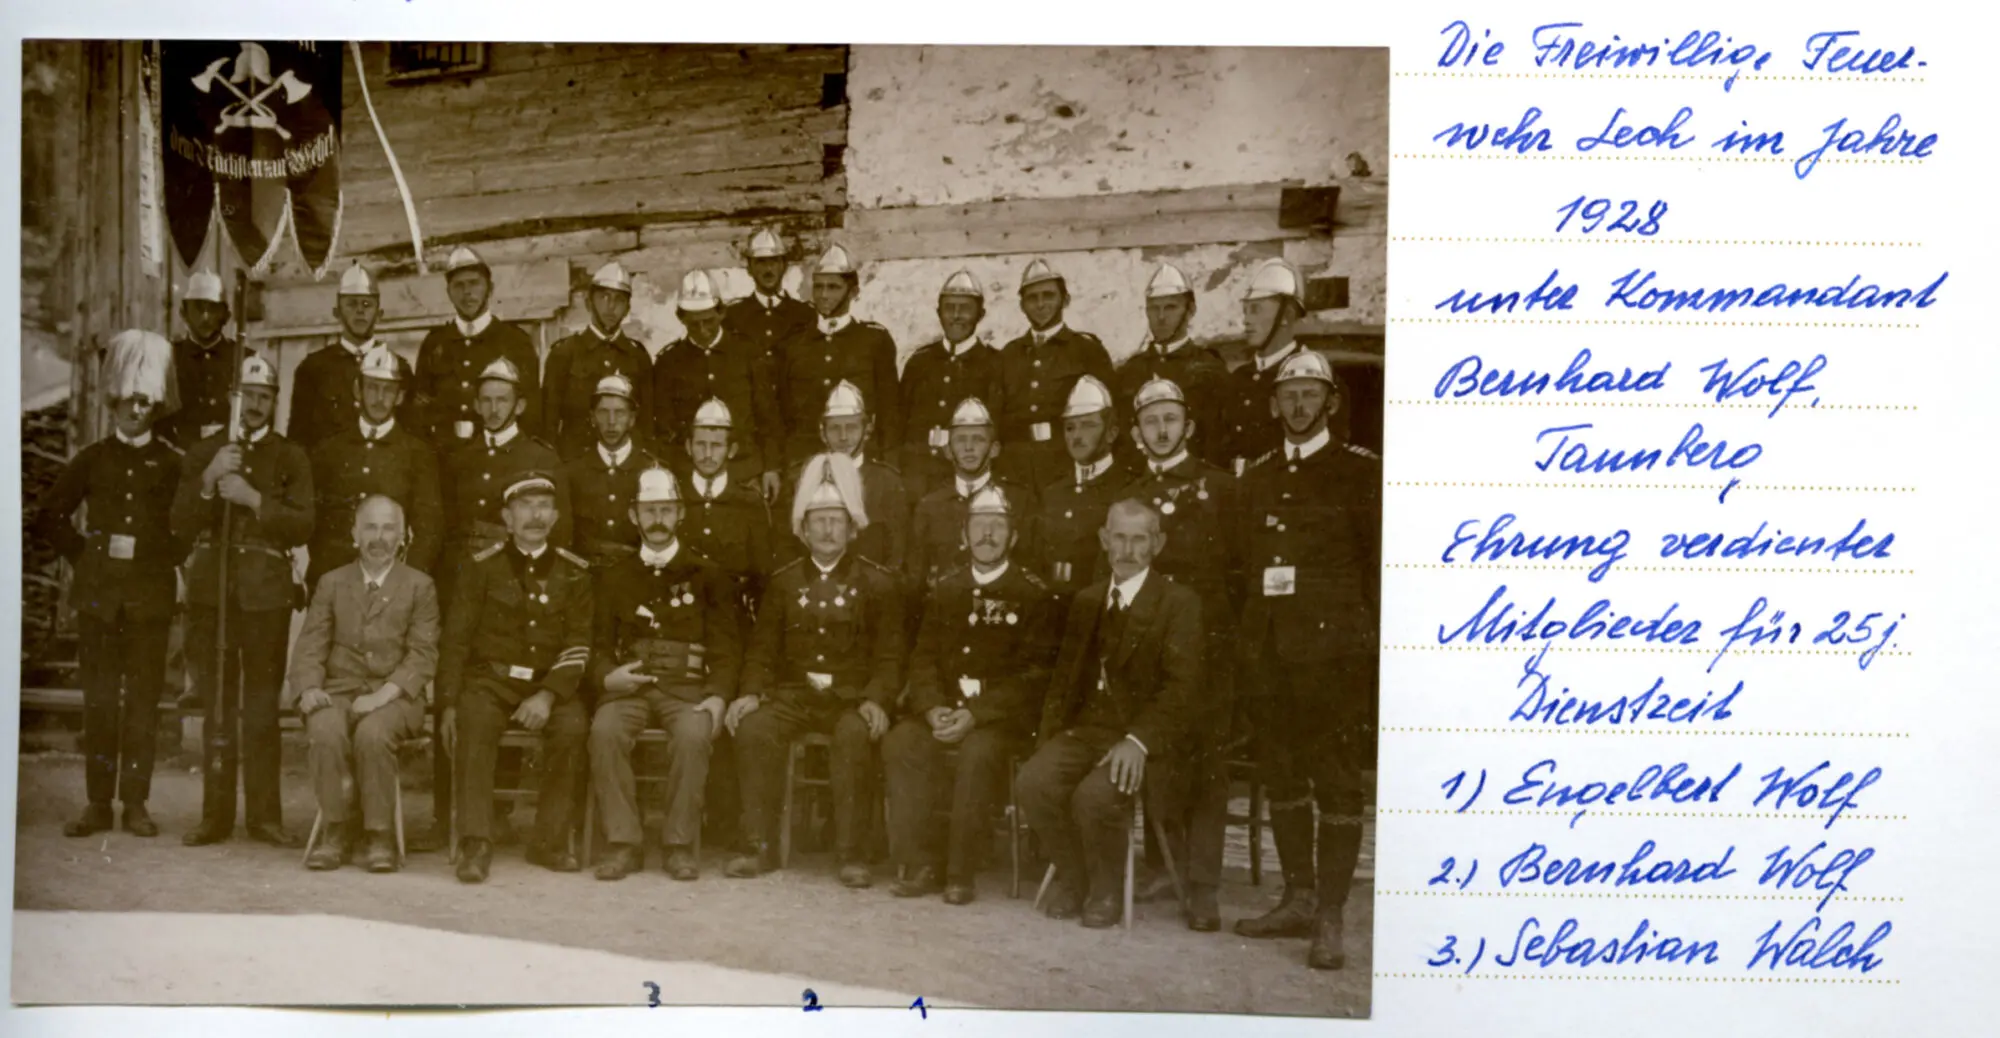 dem Nächsten zur Wehr!
Die Freiwillige Feuer-
wehr Lech im Jahre
1928
unter Kommandant
Bernhard Wolf,
Tannberg
Ehrung verdienter
Mitglieder für 25j.
Dienstzeit
1) Engelbert Wolf
2.) Bernhard Wolf
3.) Sebastian Walch
3 2 1